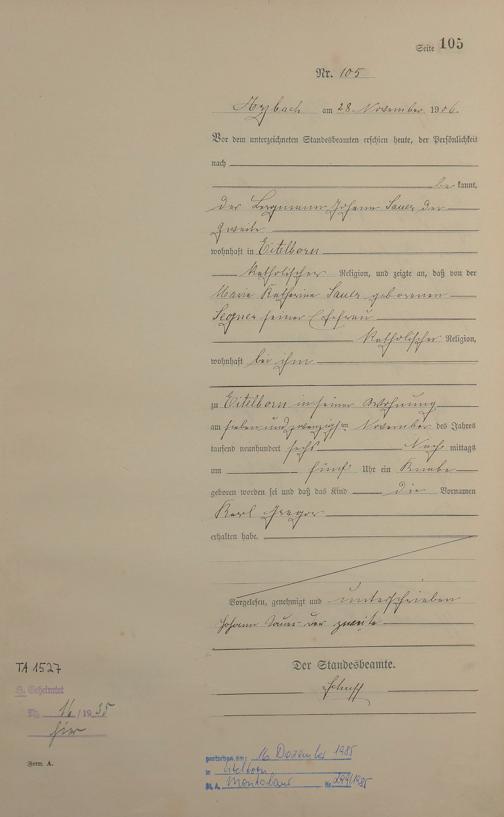 Seite 105
Nr. 105
Arzbach am 28. November 1906.
Vor dem unterzeichneten Standesbeamten erschien heute, der Persönlichkeit
nach
be kannt,
der Bergmann Johann Sauer der
Zweite
wohnhaft in Eitelborn
katholischer Religion, und zeigte an, daß von der
Maria Katharina Sauer geborenen
seiner Ehefrau
katholischer Religion,
wohnhaft bei ihm
zu Eitelborn in seiner Wohnung
am sieben und zwanzigsten November des Jahres
tausend neunhundert sechs Nach mittags
um fünf Uhr ein Knabe
geboren worden sei und daß das Kind die Vornamen
Karl Gregor
erhalten habe.
Vorgelesen, genehmigt und unterschrieben
Johann Sauer der zweite
Der Standesbeamte.
TA 1527
H. Geheiratet
Nr. 16/1935
hier
Form. A.
gestorben am: 16. Dezember 1985
in Eitelborn
St. A. Montabaur Nr. 244/1985